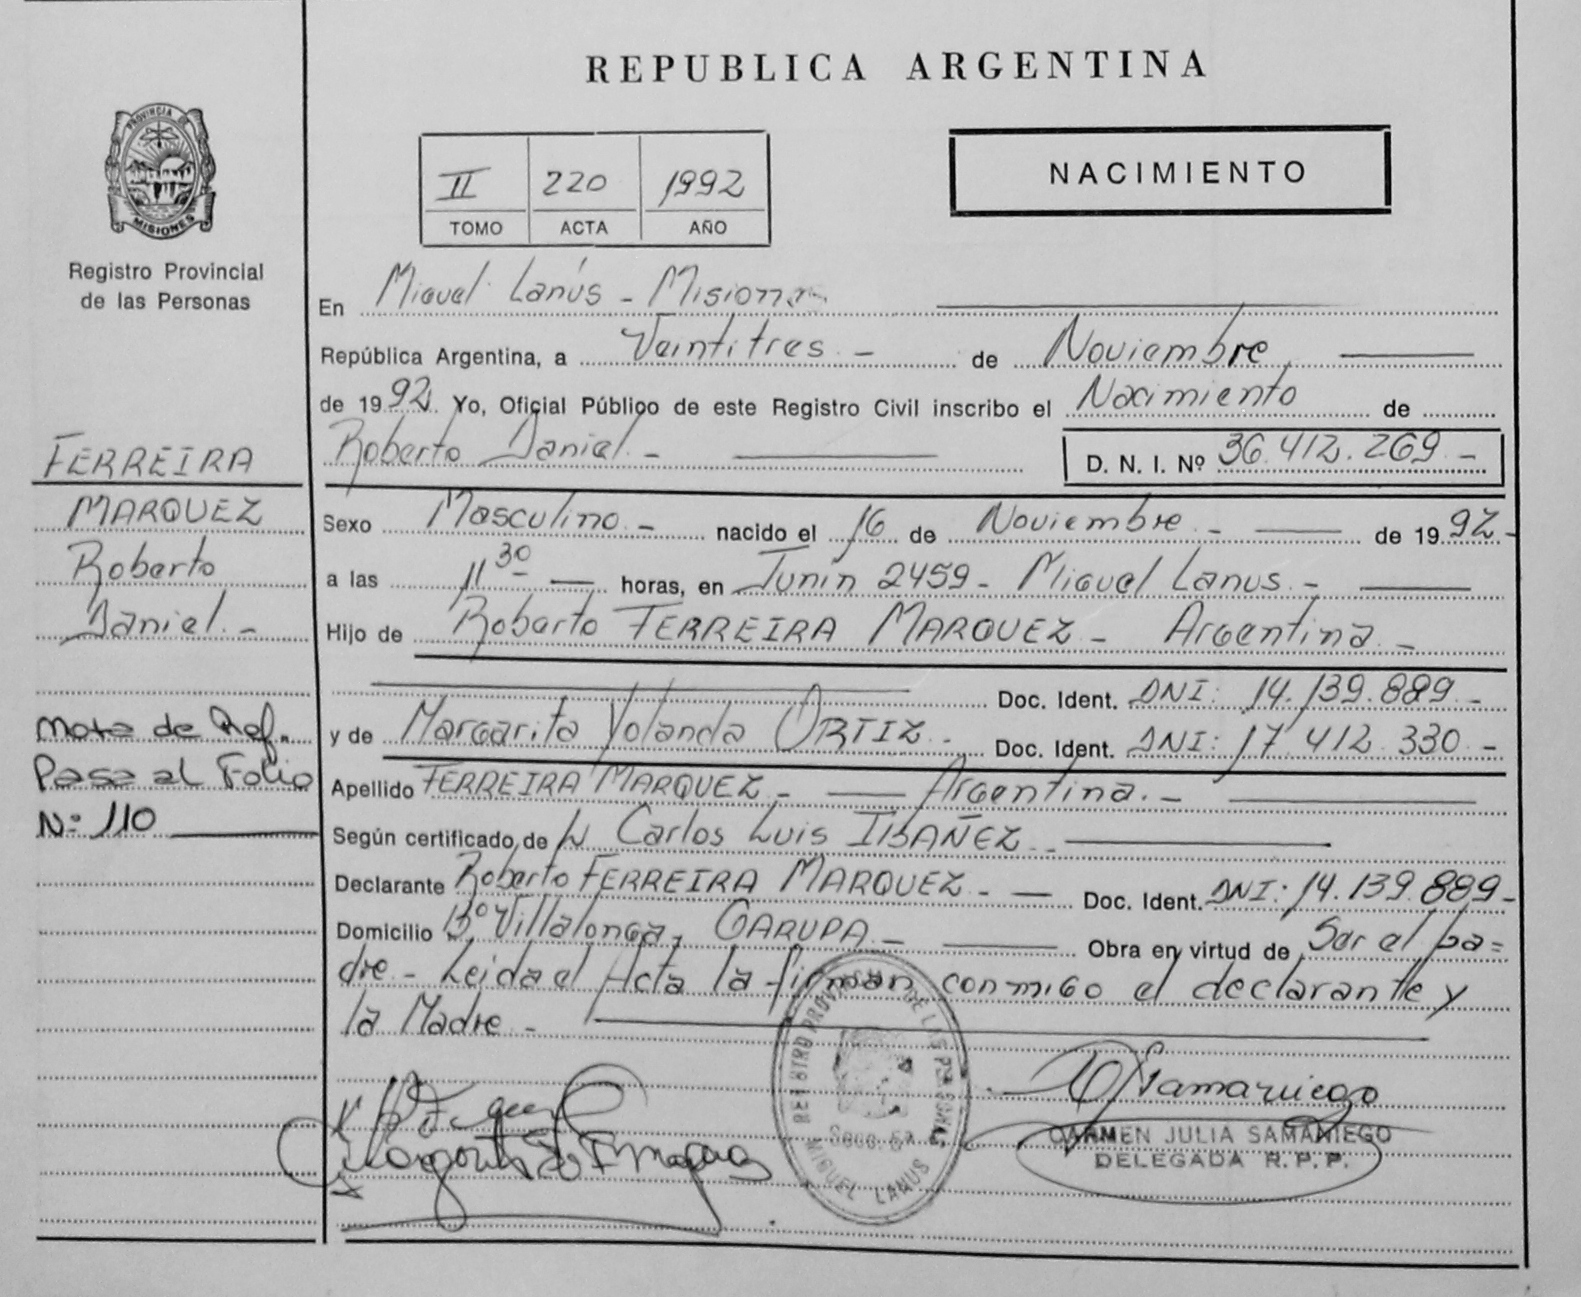 REPUBLICA ARGENTINA
PROVINCIA DE
MISIONES
Registro Provincial
de las Personas
II 220 1992
TOMO ACTA AÑO
NACIMIENTO
En Miguel Lanús - Misiones
República Argentina, a Veintitres - de Noviembre
de 1992 Yo, Oficial Público de este Registro Civil inscribo el Nacimiento de
Roberto Daniel - D. N. I. Nº 36.412.269 -
Sexo Masculino - nacido el 16 de Noviembre - de 1992 -
a las 11 30 horas, en Junin 2459 - Miguel Lanus -
Hijo de Roberto FERREIRA MARQUEZ - Argentina -
Doc. Ident. DNI: 14.139.889 -
y de Margarita Yolanda ORTIZ - Doc. Ident. DNI: 17.412.330 -
Apellido FERREIRA MARQUEZ - Argentina. -
Según certificado de Carlos Luis IBAÑEZ -
Declarante Roberto FERREIRA MARQUEZ - Doc. Ident. DNI: 14.139.889 -
Domicilio Bº Villalonga, GARUPA - Obra en virtud de Ser el pa=
dre - Leida el Acta la firman conmigo el declarante y
la Madre -
FERREIRA
MARQUEZ
Roberto
Daniel -
Nota de Ref.
Pasa al Folio
Nº 110
REGISTRO PROVINCIAL DE LAS PERSONAS
MIGUEL LANUS
Samaniego
CARMEN JULIA SAMANIEGO
DELEGADA R.P.P.